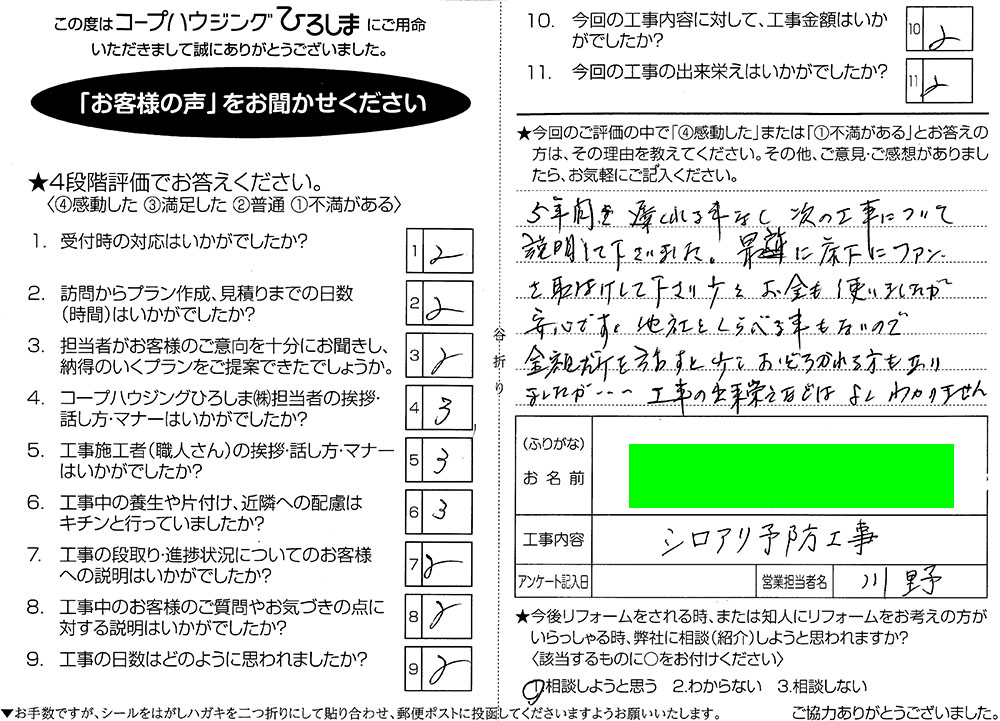 この度はコープハウジングひろしまにご用命
いただきまして誠にありがとうございました。
「お客様の声」をお聞かせください
★4段階評価でお答えください。
〈④感動した ③満足した ②普通 ①不満がある〉
1. 受付時の対応はいかがでしたか? 1 2
2. 訪問からプラン作成、見積りまでの日数
(時間)はいかがでしたか? 2 2
3. 担当者がお客様のご意向を十分にお聞きし、
納得のいくプランをご提案できたでしょうか。 3 2
4. コープハウジングひろしま㈱担当者の挨拶・
話し方・マナーはいかがでしたか? 4 3
5. 工事施工者(職人さん)の挨拶・話し方・マナー
はいかがでしたか? 5 3
6. 工事中の養生や片付け、近隣への配慮は
キチンと行っていましたか? 6 3
7. 工事の段取り・進捗状況についてのお客様
への説明はいかがでしたか? 7 2
8. 工事中のお客様のご質問やお気づきの点に
対する説明はいかがでしたか? 8 2
9. 工事の日数はどのように思われましたか? 9 2
▼お手数ですが、シールをはがしハガキを二つ折りにして貼り合わせ、郵便ポストに投函してくださいますようお願いいたします。
谷折り
10. 今回の工事内容に対して、工事金額はいか
がでしたか? 10 2
11. 今回の工事の出来栄えはいかがでしたか? 11 2
★今回のご評価の中で「④感動した」または「①不満がある」とお答えの
方は、その理由を教えてください。その他、ご意見・ご感想がありまし
たら、お気軽にご記入ください。
5年間を遅くれる事なし 次の工事について
説明して下さいました。最 に床下にファン
を取付けして下さり少々お金も使いましたが
安心です。他社とくらべる事もないので
金額だけを話すと少しおどろかれる方も在り
ましたが・・・工事の出来栄えなどはよくわかりません
(ふりがな)
お名前
工事内容 シロアリ予防工事
アンケート記入日 営業担当者名 川野
★今後リフォームをされる時、または知人にリフォームをお考えの方が
いらっしゃる時、弊社に相談(紹介)しようと思われますか?
〈該当するものに○をお付けください〉
1.相談しようと思う 2.わからない 3.相談しない
ご協力ありがとうございました。